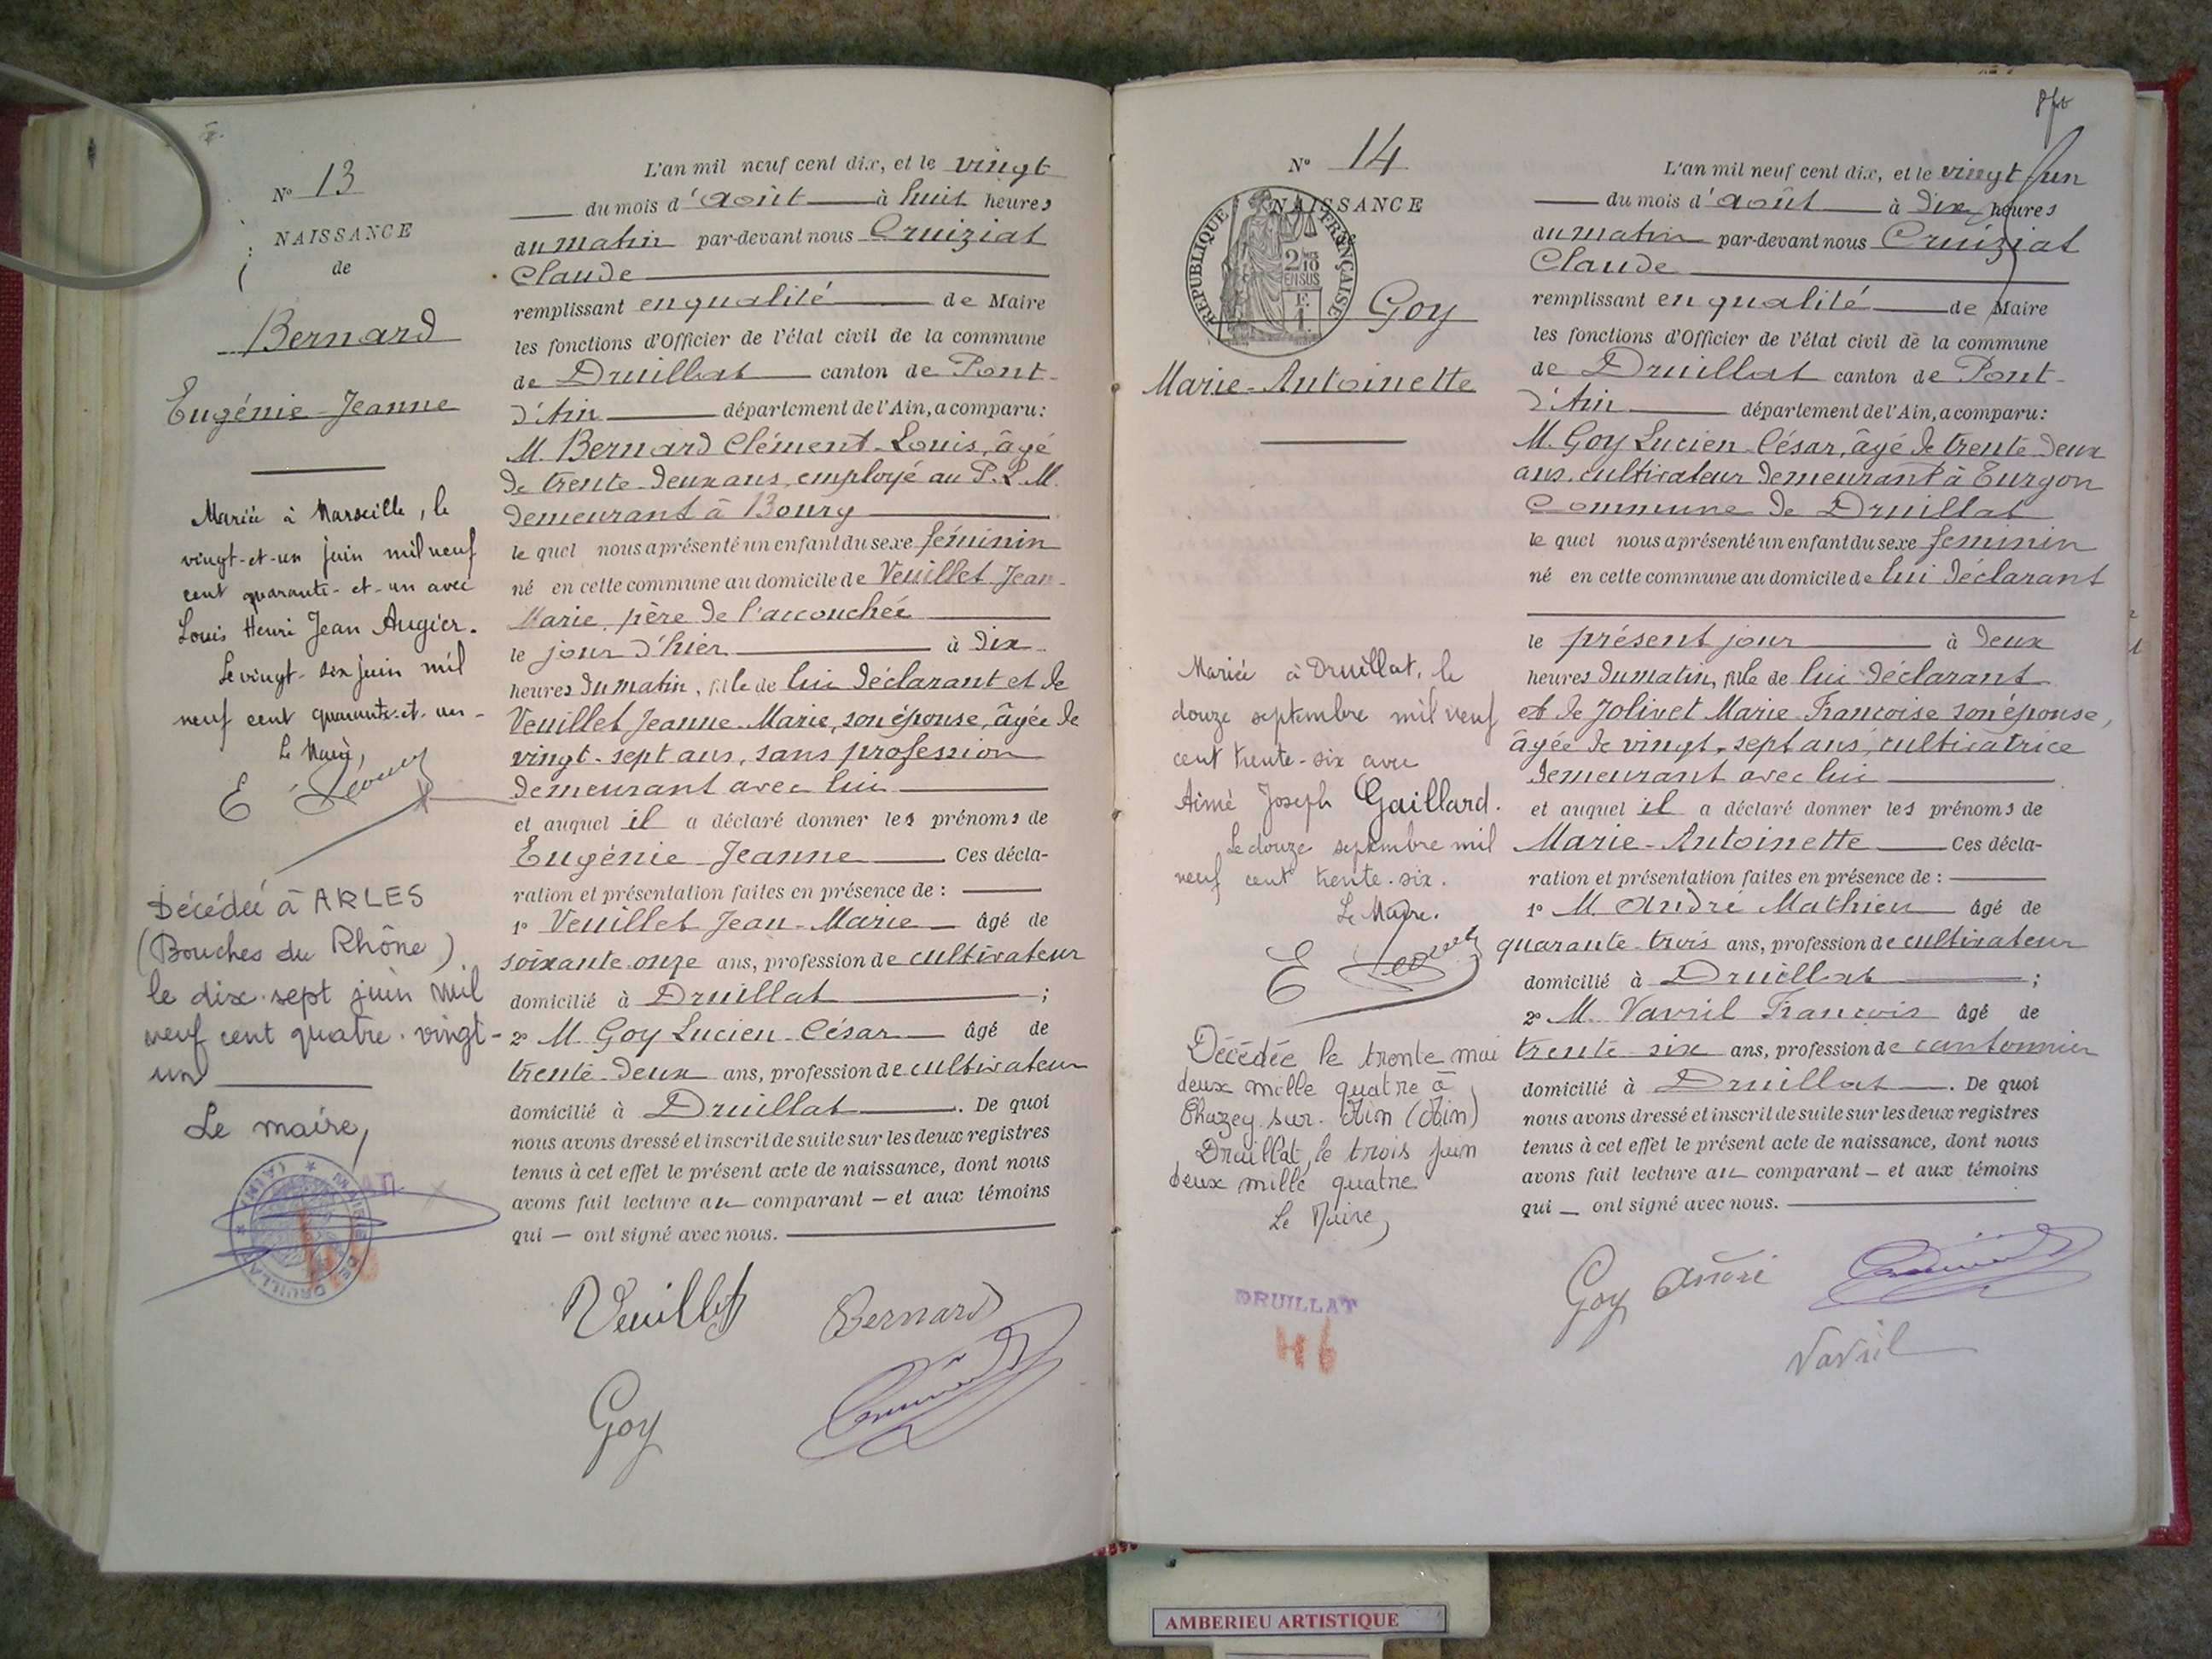 N° 13
NAISSANCE
de
Bernard
Eugénie-Jeanne
Mariée à Marseille, le
vingt-et-un juin mil neuf
cent quarante-et-un avec
Louis Henri Jean Augier.
Le vingt-six juin mil
neuf cent quarante-et-un-
Le Maire,
Décédée à ARLES
(Bouches du Rhône)
le dix-sept juin mil
neuf cent quatre-vingt-
un
Le maire,
L'an mil neuf cent dix, et le vingt
du mois d'août à huit heures
du matin par-devant nous Cruiziat
Claude
remplissant en qualité de Maire
les fonctions d'Officier de l'état civil de la commune
de Druillat canton de Pont-
d'Ain département de l'Ain, a comparu:
M. Bernard Clément-Louis, âgé
de trente-deux ans, employé au P.L.M.
demeurant à Bourg
le quel nous a présenté un enfant du sexe féminin
né en cette commune au domicile de Veuillet Jean-
Marie, père de l'accouchée
le jour d'hier à dix
heures du matin, fille de lui déclarant et de
Veuillet Jeanne-Marie, son épouse, âgée de
vingt-sept ans, sans profession
demeurant avec lui
et auquel il a déclaré donner les prénoms de
Eugénie-Jeanne Ces décla-
ration et présentation faites en présence de :
1° Veuillet Jean-Marie âgé de
soixante-onze ans, profession de cultivateur
domicilié à Druillat ;
2° M. Goy Lucien-César âgé de
trente-deux ans, profession de cultivateur
domicilié à Druillat. De quoi
nous avons dressé et inscrit de suite sur les deux registres
tenus à cet effet le présent acte de naissance, dont nous
avons fait lecture au comparant — et aux témoins
qui — ont signé avec nous.
Veuillet Bernard
Goy
N° 14
NAISSANCE
REPUBLIQUE FRANÇAISE
2/10 EN SUS
Goy
Marie-Antoinette
Mariée à Druillat, le
douze septembre mil neuf
cent trente-six avec
Aimé Joseph Gaillard.
Le douze septembre mil
neuf cent trente-six.
Le Maire.
Décédée le trente mai
deux mille quatre à
Chazey-sur-Ain (Ain)
Druillat, le trois juin
deux mille quatre
Le Maire,
DRUILLAT
46
L'an mil neuf cent dix, et le vingt un
du mois d'août à dix heures
du matin par-devant nous Cruiziat
Claude
remplissant en qualité de Maire
les fonctions d'Officier de l'état civil de la commune
de Druillat canton de Pont-
d'Ain département de l'Ain, a comparu:
M. Goy Lucien-César, âgé de trente-deux
ans, cultivateur demeurant à Turgon
Commune de Druillat
le quel nous a présenté un enfant du sexe féminin
né en cette commune au domicile de lui déclarant
le présent jour à deux
heures du matin, fille de lui déclarant
et de Jolivet Marie-Françoise son épouse,
âgée de vingt-sept ans, cultivatrice
demeurant avec lui
et auquel il a déclaré donner les prénoms de
Marie-Antoinette Ces décla-
ration et présentation faites en présence de :
1° M. André Mathieu âgé de
quarante-trois ans, profession de cultivateur
domicilié à Druillat ;
2° M. Vavril François âgé de
trente-six ans, profession de cantonnier
domicilié à Druillat. De quoi
nous avons dressé et inscrit de suite sur les deux registres
tenus à cet effet le présent acte de naissance, dont nous
avons fait lecture au comparant — et aux témoins
qui — ont signé avec nous.
Goy André
Vavril
AMBERIEU ARTISTIQUE